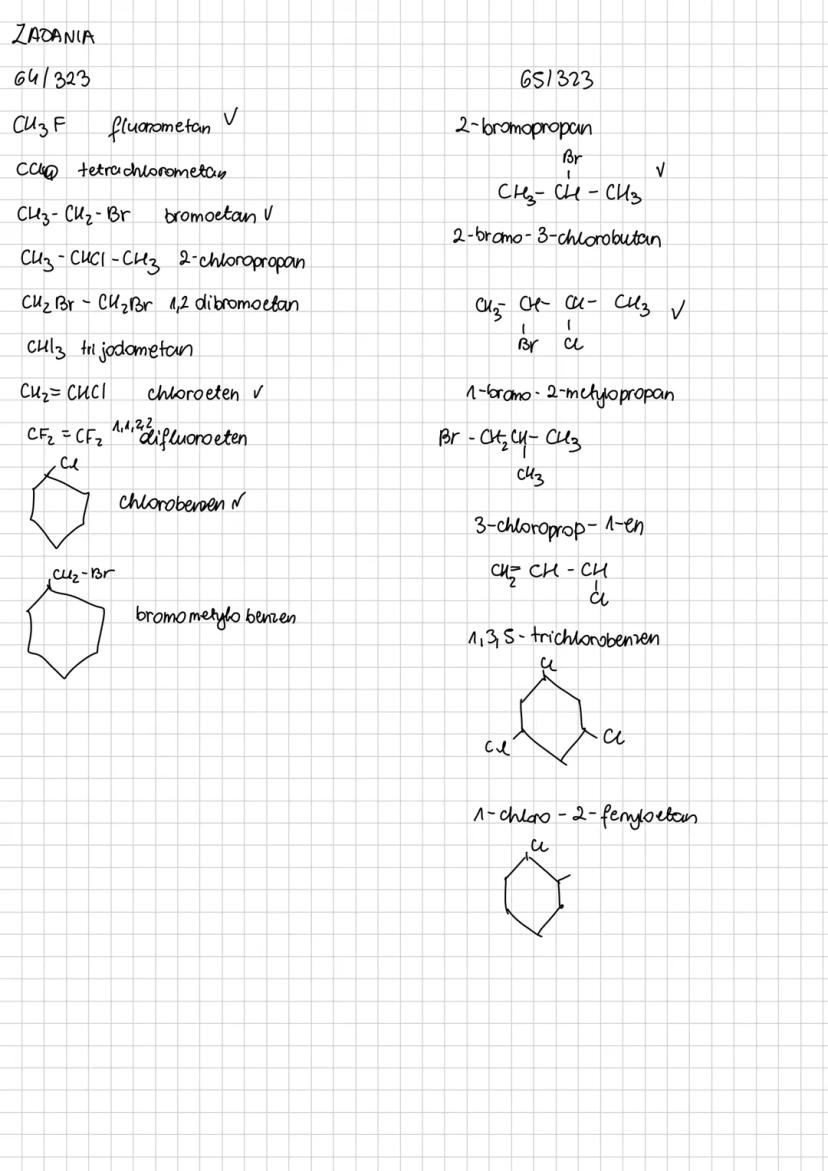 ZADANIA
64/323
CH3F fluorometan √
CCl4 tetrachlorometan
CH3-CH2-Br bromoetan √
CH3-CHCl-CH3 2-chloropropan
CH2Br-CH2Br 1,2 dibromoetan
CHI3 trijodometan
CH2=CHCl chloroeten √
CF2=CF2 1,1,2,2 difluoroeten
Cl
chlorobenzen √
CH2-Br
bromometylo benzen
65/323
2-bromopropan
Br
CH3-CH-CH3 √
2-bromo-3-chlorobutan
CH3-CH-CH-CH3 √
Br Cl
1-bromo-2-metylopropan
Br-CH2CH-CH3
CH3
3-chloroprop-1-en
CH2=CH-CH
Cl
1,3,5-trichlorobenzen
Cl
Cl Cl
1-chloro-2-fenyloetan
Cl